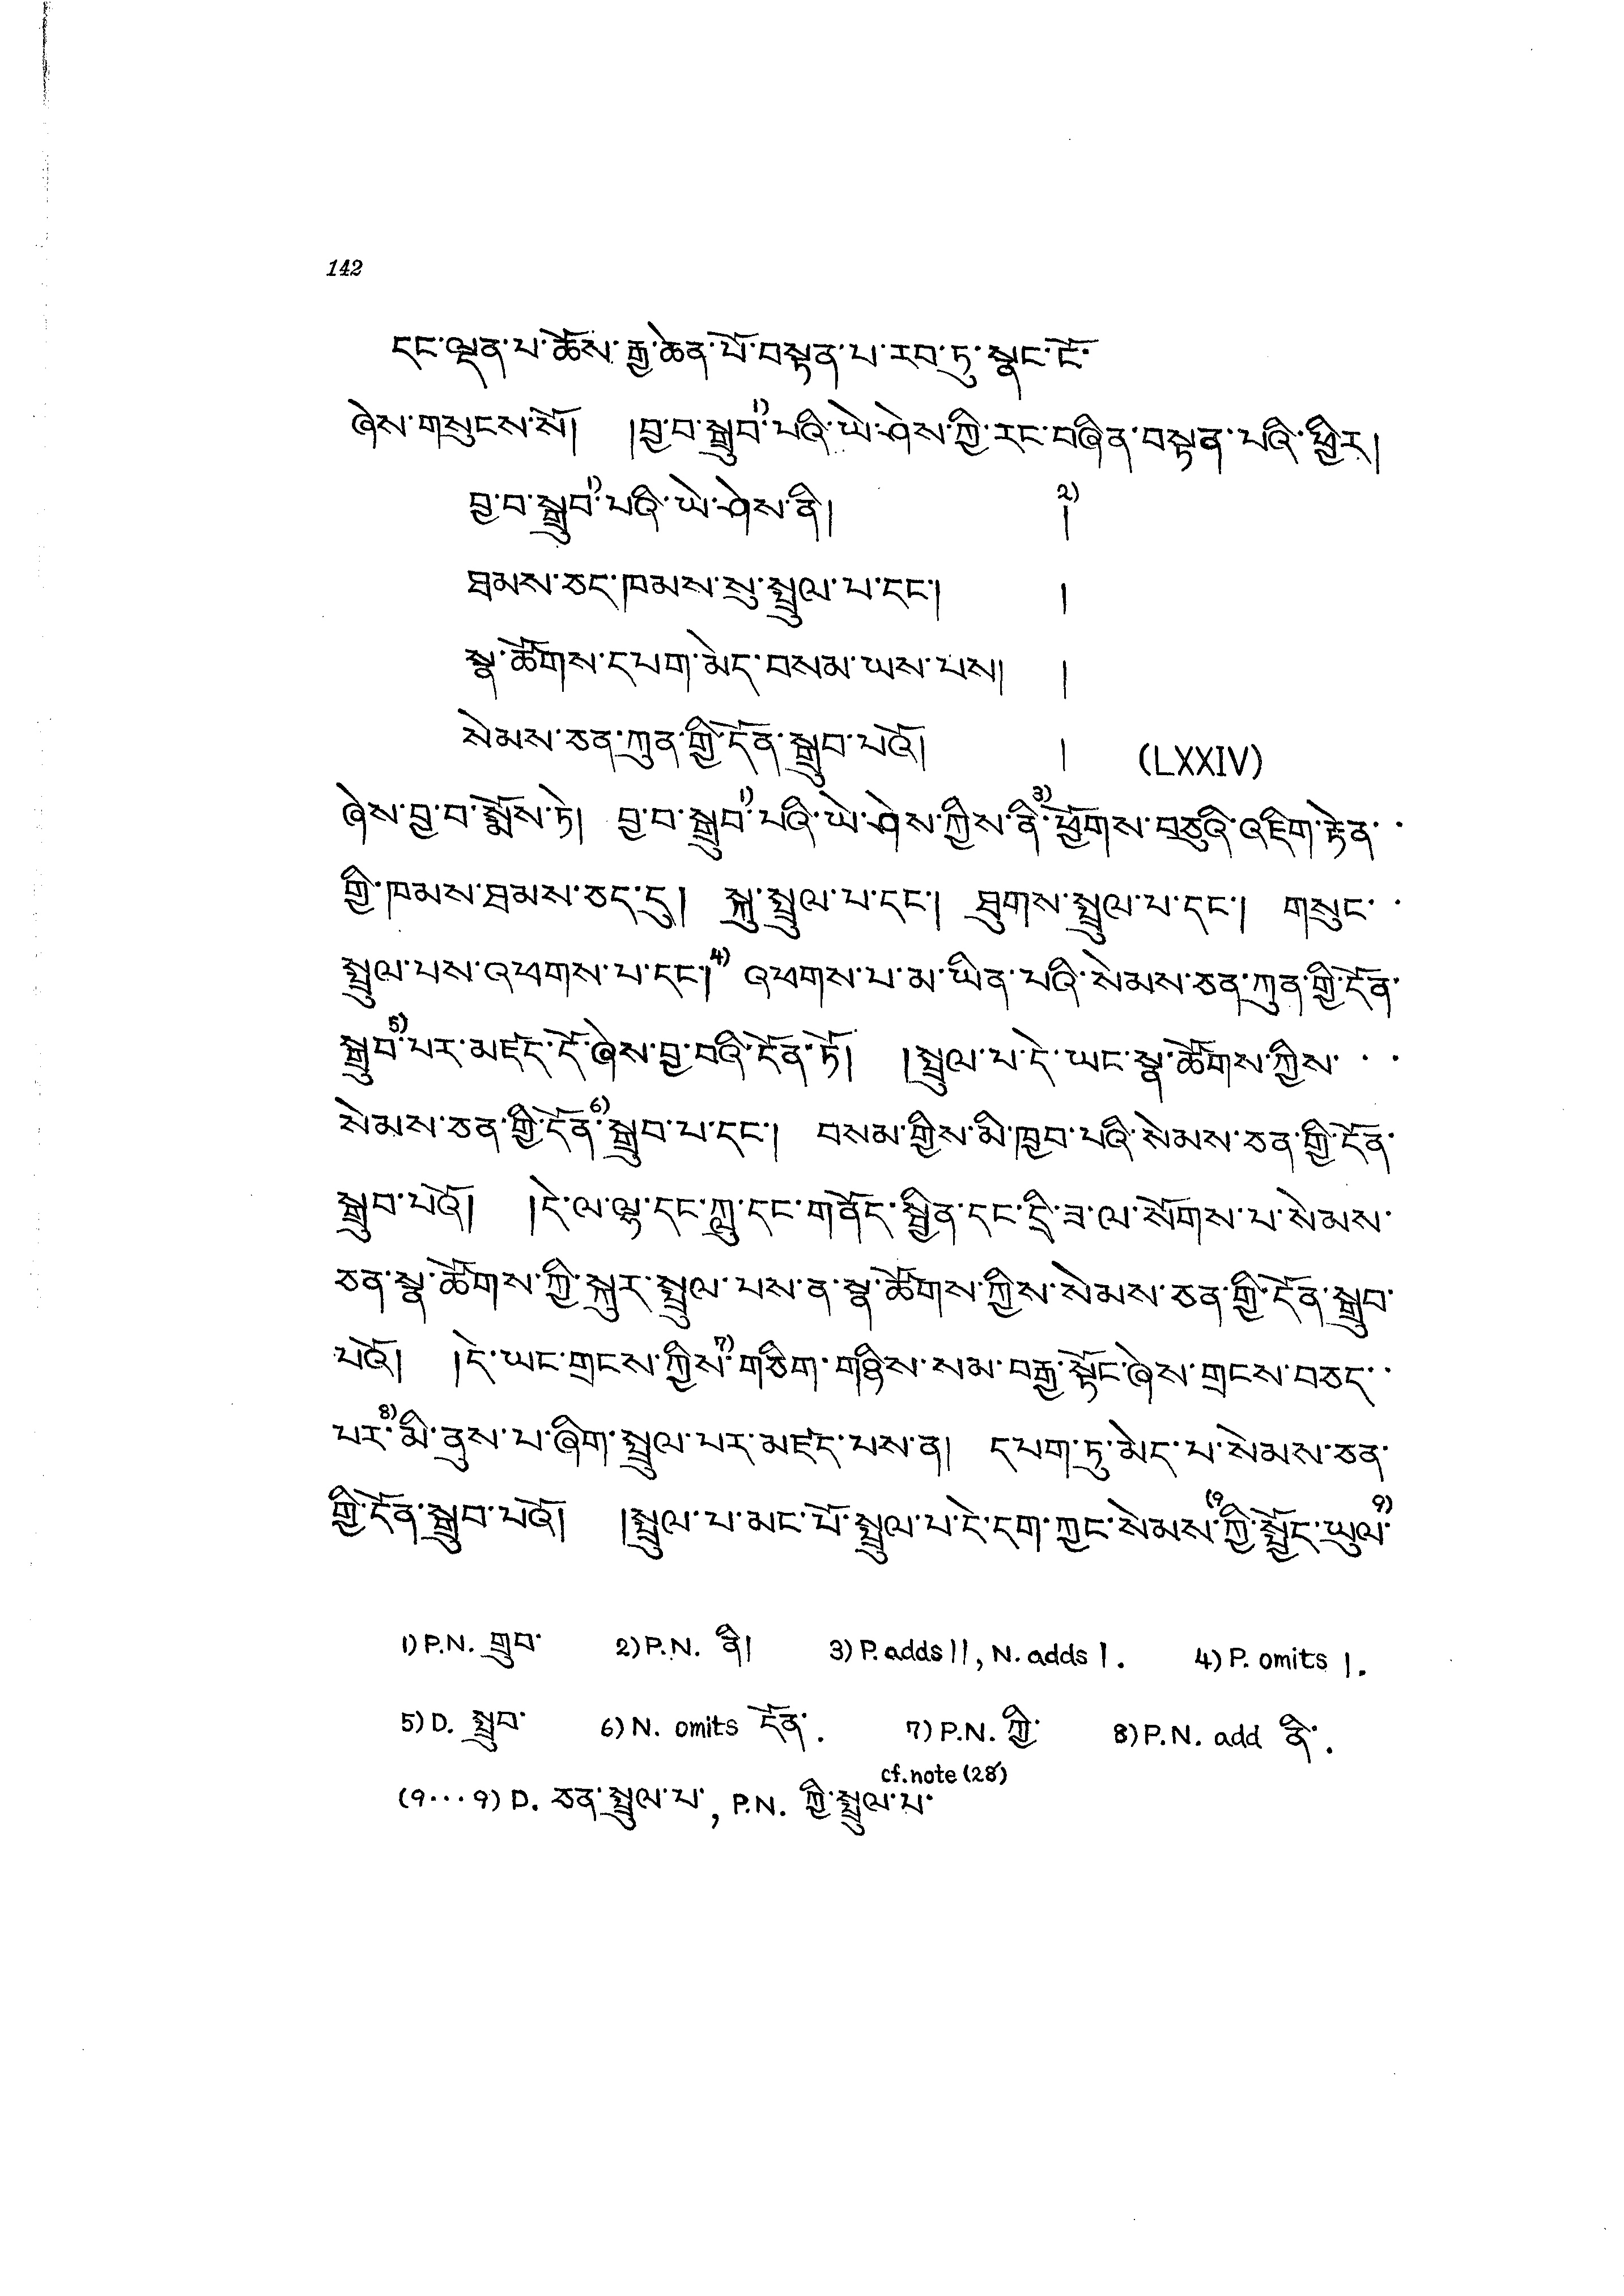 142
དང་ལྡན་པ་ཆོས་རྒྱ་ཆེན་པོ་བསྟན་པ་རབ་ཏུ་སྣང་ངོ་
ཞེས་གསུངས་སོ། །བྱ་བ་སྒྲུབ་1)པའི་ཡེ་ཤེས་ཀྱི་རང་བཞིན་བསྟན་པའི་ཕྱིར།
བྱ་བ་སྒྲུབ་1)པའི་ཡེ་ཤེས་ནི། 2)།
ཐམས་ཅད་ཁམས་སུ་སྤྲུལ་པ་དང་། །
སྣ་ཚོགས་དཔག་མེད་བསམ་ཡས་པས། །
སེམས་ཅན་ཀུན་གྱི་དོན་སྒྲུབ་པའོ། ། (LXXIV)
ཞེས་བྱ་བ་སྨོས་ཏེ། བྱ་བ་སྒྲུབ་1)པའི་ཡེ་ཤེས་ཀྱིས་ནི་3)ཕྱོགས་བཅུའི་འཇིག་རྟེན་ ·
གྱི་ཁམས་ཐམས་ཅད་དུ། སྐུ་སྤྲུལ་པ་དང་། ཐུགས་སྤྲུལ་པ་དང་། གསུང་ ·
སྤྲུལ་པས་འཕགས་པ་དང་།4) འཕགས་པ་མ་ཡིན་པའི་སེམས་ཅན་ཀུན་གྱི་དོན་
སྒྲུབ་5)པར་མཛད་དོ་ཞེས་བྱ་བའི་དོན་ཏོ། །སྤྲུལ་པ་དེ་ཡང་སྣ་ཚོགས་ཀྱིས་ · ·
སེམས་ཅན་གྱི་དོན་6)སྒྲུབ་པ་དང་། བསམ་གྱིས་མི་ཁྱབ་པའི་སེམས་ཅན་གྱི་དོན་
སྒྲུབ་པའོ། །དེ་ལ་ལྷ་དང་ཀླུ་དང་གནོད་སྦྱིན་དང་དྲི་ཟ་ལ་སོགས་པ་སེམས་
ཅན་སྣ་ཚོགས་ཀྱི་སྐུར་སྤྲུལ་པས་ན་སྣ་ཚོགས་ཀྱིས་སེམས་ཅན་གྱི་དོན་སྒྲུབ་
པའོ། །དེ་ཡང་གྲངས་ཀྱིས་7)གཅིག་གཉིས་སམ་བརྒྱ་སྟོང་ཞེས་གྲངས་བཅད་ ·
པར་8)མི་ནུས་པ་ཞིག་སྤྲུལ་པར་མཛད་པས་ན། དཔག་ཏུ་མེད་པ་སེམས་ཅན་
གྱི་དོན་སྒྲུབ་པའོ། །སྤྲུལ་པ་མང་པོ་སྤྲུལ་པ་དེ་དག་ཀྱང་སེམས་(9ཀྱི་སྤྱོད་ཡུལ་9)
1) P.N. གྲུབ་ 2) P.N. ནི། 3) P. adds ||, N. adds |. 4) P. omits |.
5) D. སྤྲུབ་ 6) N. omits དོན་. 7) P.N. ཀྱི་ 8) P.N. add ནི་.
(9···9) D. ཅན་སྤྲུལ་པ་, P.N. ཀྱི་སྤྲུལ་པ་ cf. note (28)